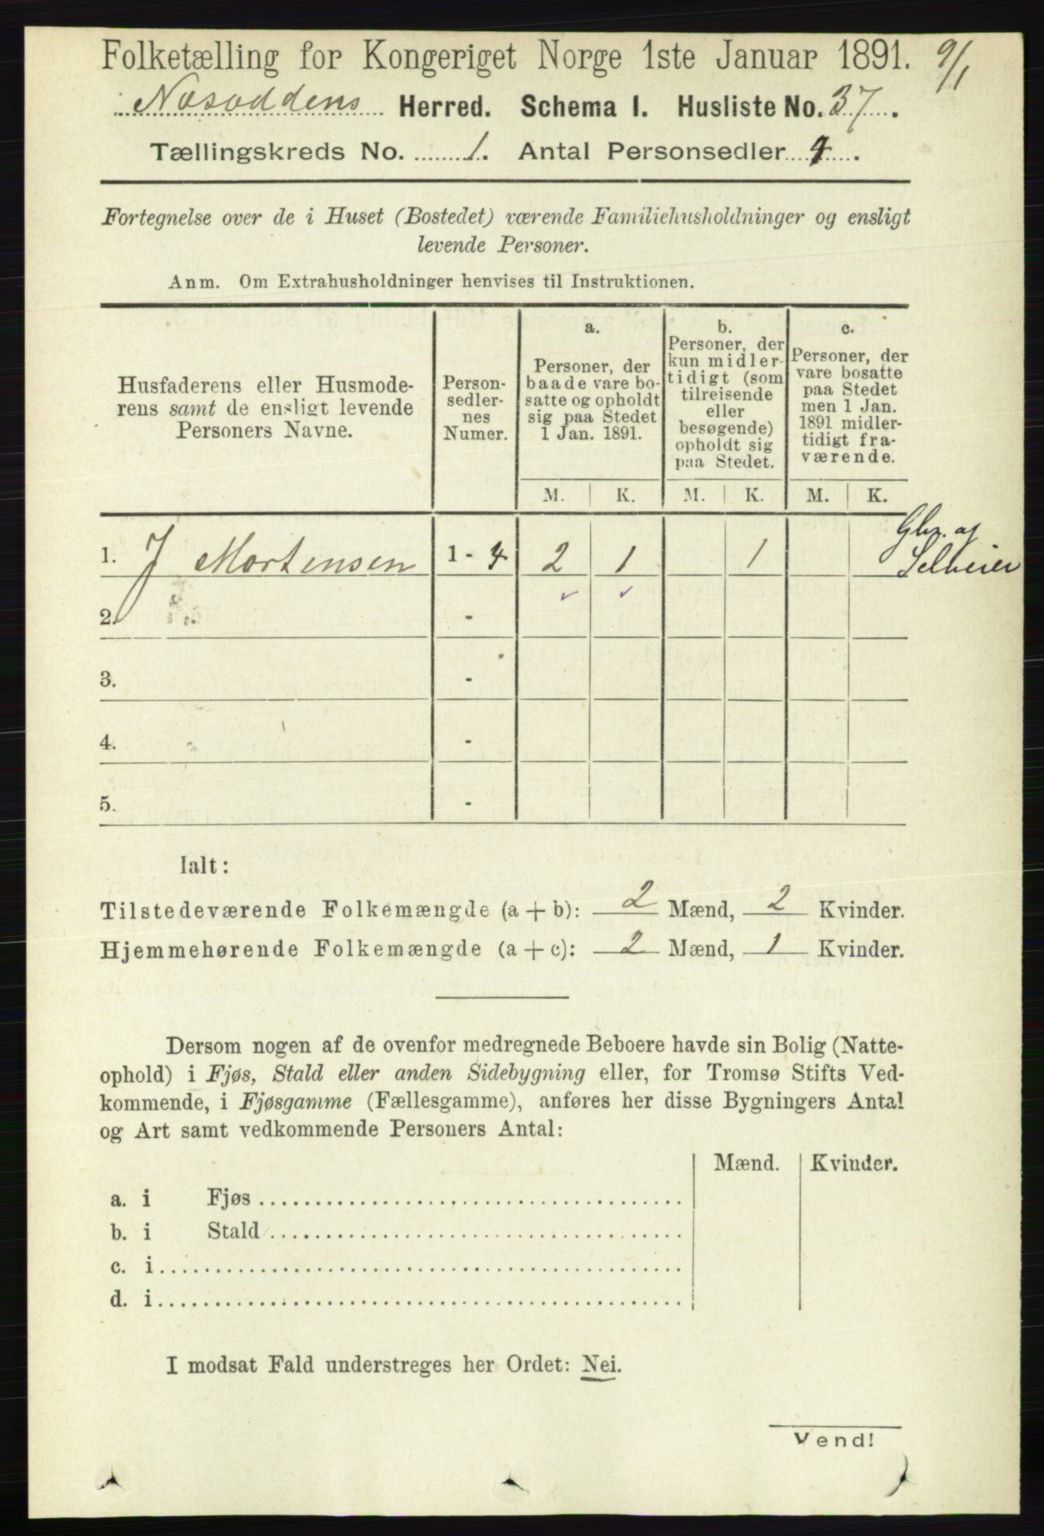 Folketælling for Kongeriget Norge 1ste Januar 1891. 9/1
Næsoddens Herred. Schema I. Husliste No. 37.
Tællingskreds No. 1. Antal Personsedler 4.
Fortegnelse over de i Huset (Bostedet) værende Familiehusholdninger og ensligt
levende Personer.
Anm. Om Extrahusholdninger henvises til Instruktionen.
Husfaderens eller Husmode-
rens samt de ensligt levende
Personers Navne.
Person-
sedler-
nes
Numer.
a.
Personer, der
baade vare bo-
satte og opholdt
sig paa Stedet
1 Jan. 1891.
b.
Personer, der
kun midler-
tidigt (som
tilreisende
eller
besøgende)
opholdt sig
paa Stedet.
c.
Personer, der
vare bosatte
paa Stedet
men 1 Jan.
1891 midler-
tidigt fra-
værende.
M. K. M. K. M. K.
1. J Mortensen 1 - 4 2 1 1 Gbr. af
Selveier
2. -
3. -
4. -
5. -
Ialt:
Tilstedeværende Folkemængde (a + b): 2 Mænd, 2 Kvinder.
Hjemmehørende Folkemængde (a + c): 2 Mænd, 1 Kvinder.
Dersom nogen af de ovenfor medregnede Beboere havde sin Bolig (Natte-
ophold) i Fjøs, Stald eller anden Sidebygning eller, for Tromsø Stifts Ved-
kommende, i Fjøsgamme (Fællesgamme), anføres her disse Bygningers Antal
og Art samt vedkommende Personers Antal:
Mænd. Kvinder.
a. i Fjøs
b. i Stald
c. i
d. i
I modsat Fald understreges her Ordet: Nei.
Vend!